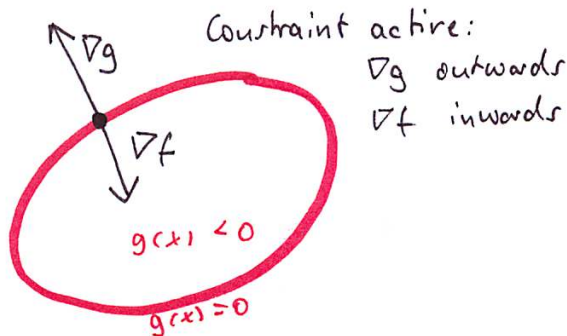 Constraint active:
∇g outwards
∇f inwards
∇g
∇f
g(x) < 0
g(x) = 0